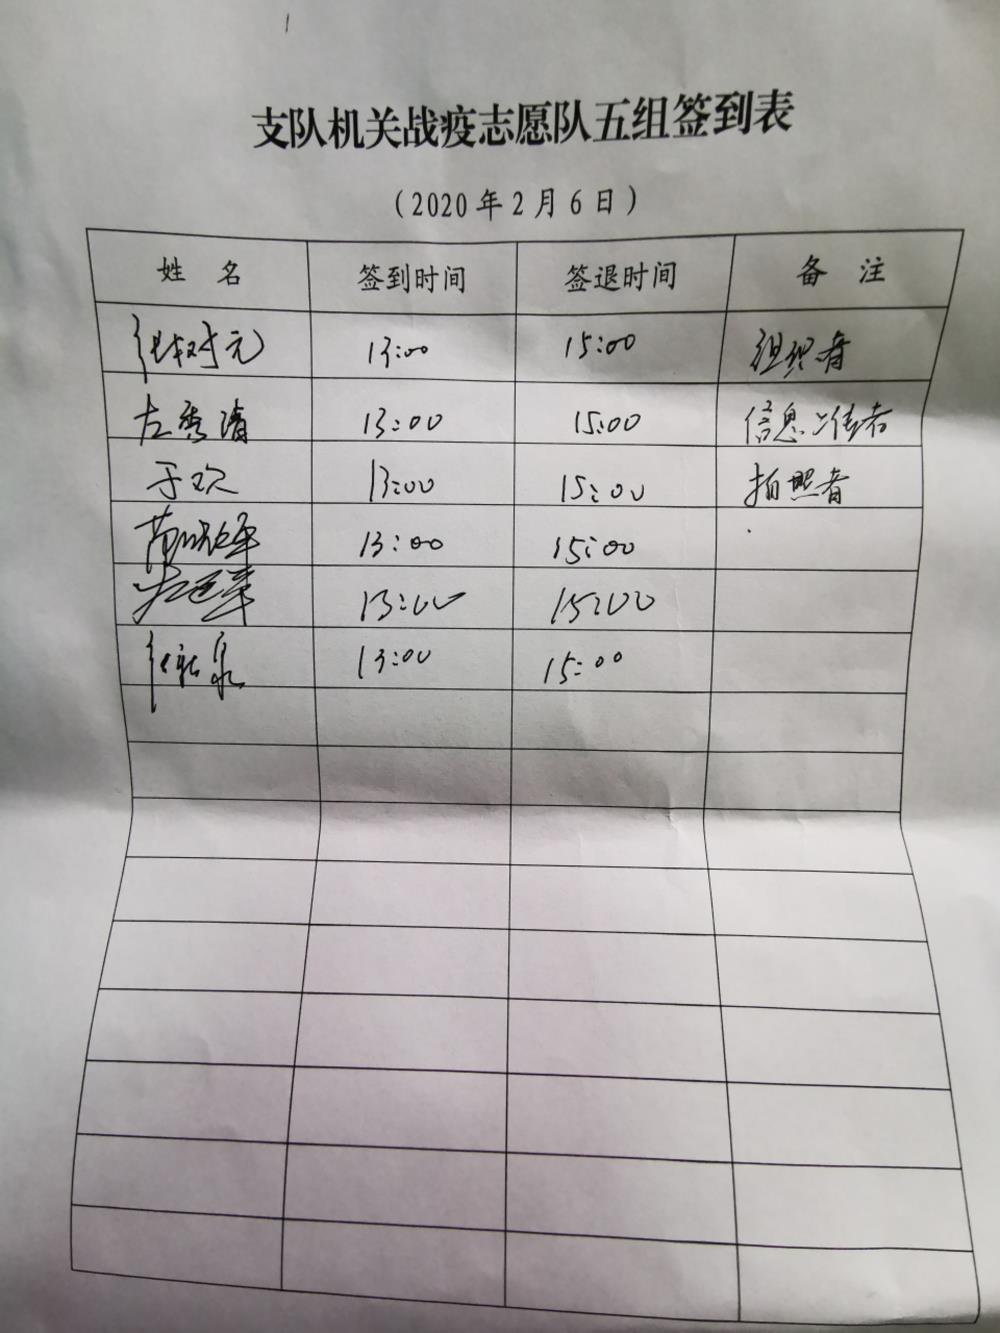 支队机关战疫志愿队五组签到表
（2020年2月6日）
姓 名 签到时间 签退时间 备 注
13:00 15:00 组织者
左秀清 13:00 15:00 信息上传者
于欢 13:00 15:00 拍照者
13:00 15:00
13:00 15:00
13:00 15:00